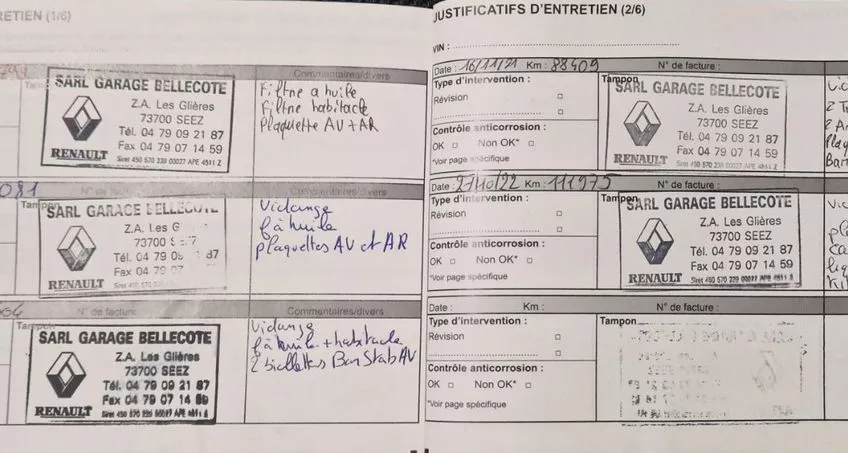 RETIEN (1/6)
Commentaires/divers
SARL GARAGE BELLECOTE
Z.A. Les Glières
73700 SEEZ
Tél. 04 79 09 21 87
Fax 04 79 07 14 59
RENAULT Siret 450 570 239 00027 APE 4511 Z
Filtre a huile
Filtre habitacle
Plaquette AV + AR
081
N° de facture
Commentaires/divers
Tampon
SARL GARAGE BELLECOTE
Z.A. Les G
73700 S
Tél. 04 79 09 87
Fax 04 79 07
RENAULT
Vidange
fà huile
plaquettes AV et AR
N° de facture
Commentaires/divers
Tampon
SARL GARAGE BELLECOTE
Z.A. Les Glières
73700 SEEZ
Tél. 04 79 09 21 87
Fax 04 79 07 14 59
RENAULT Siret 450 570 239 00027 APE 4511 Z
Vidange
fà huile + habitacle
2 biellettes Bar Stab AV
JUSTIFICATIFS D'ENTRETIEN (2/6)
VIN :
Date : 16/11/21 Km : 88409 N° de facture :
Type d'intervention :
Révision
Contrôle anticorrosion :
OK Non OK*
*Voir page spécifique
Tampon
SARL GARAGE BELLECOTE
Z.A. Les Glières
73700 SEEZ
Tél. 04 79 09 21 87
Fax 04 79 07 14 59
RENAULT Siret 450 570 239 00027 APE 4511 Z
Date : 27/10/22 Km : 111975 N° de facture :
Type d'intervention :
Révision
Contrôle anticorrosion :
OK Non OK*
*Voir page spécifique
Tampon
SARL GARAGE BELLECOTE
Z.A. Les Glières
73700 SEEZ
Tél. 04 79 09 21 87
Fax 04 79 07 14 59
RENAULT Siret 450 570 239 00027 APE 4511 Z
Date : Km : N° de facture :
Type d'intervention :
Révision
Contrôle anticorrosion :
OK Non OK*
*Voir page spécifique
Tampon